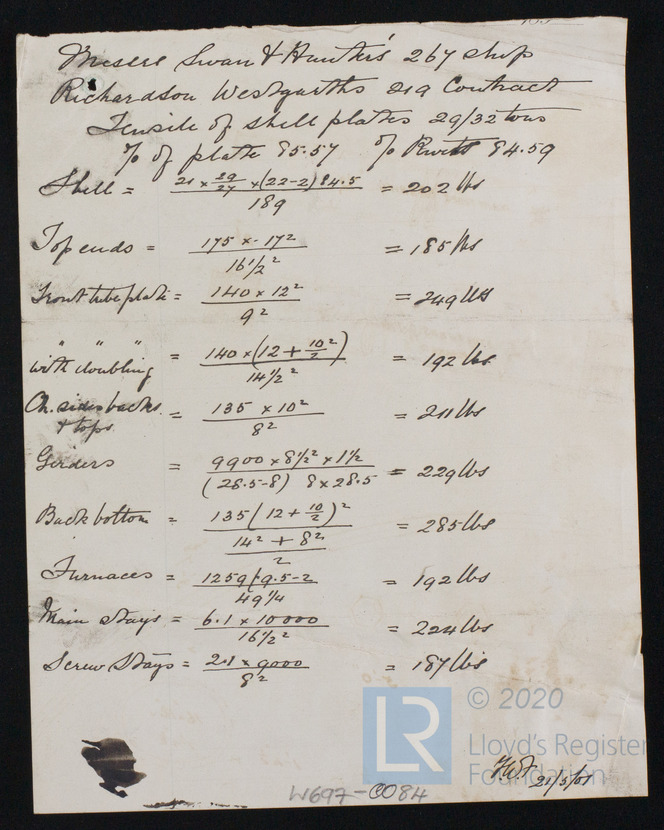 Messrs Swan & Hunter's 267 ship
Richardson Westgarths 219 Contract
Tensile of shell plates 29/32 tons
% of plate 85.57 % Rivets 84.59
Shell = 21 × 29/27 × (22-2) 84.5 / 189 = 202 lbs
Top ends = 175 × 17² / 16½² = 185 lbs
Front tube plate = 140 × 12² / 9² = 249 lbs
" " " with doubling = 140 × (12 + 10/2)² / 14½² = 192 lbs
Ch. sides backs & tops = 135 × 10² / 8² = 211 lbs
Girders = 9900 × 8½² × 1½ / (28.5-8) 8 × 28.5 = 229 lbs
Back bottom = 135 (12 + 10/2)² / 14² + 8² / 2 = 285 lbs
Furnaces = 1259 (9.5-2 / 49¼ = 192 lbs
Main stays = 6.1 × 10000 / 16½² = 224 lbs
Screw Stays = 2.1 × 9000 / 8² = 187 lbs
LR
© 2020
Lloyd's Register
Foundation
21/5/01
W697-0084